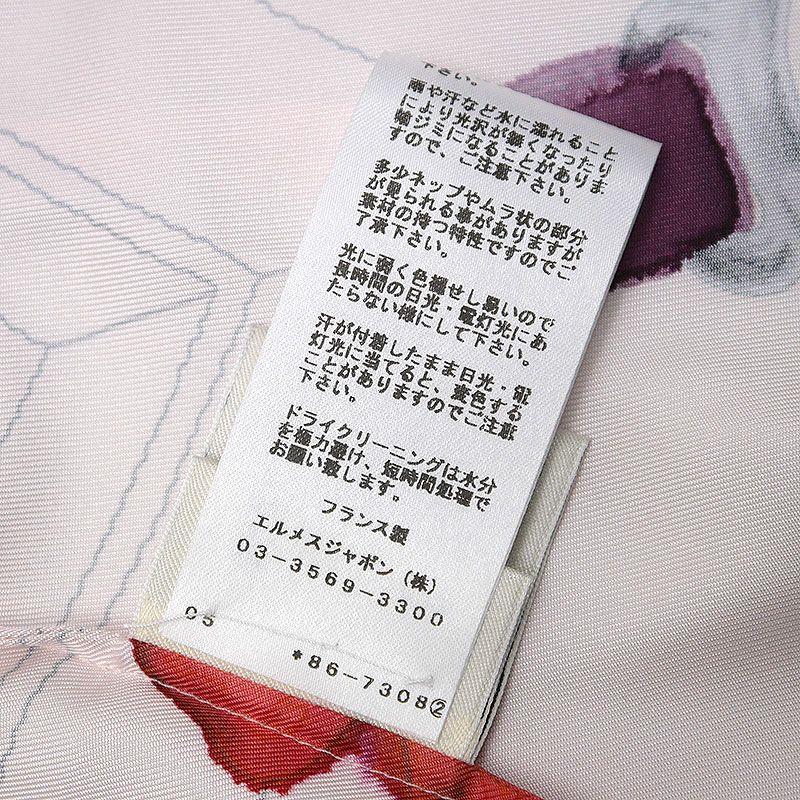 下さい。
雨や汗など水に濡れること
により光沢が無くなったり
輪ジミになることがありま
すので、ご注意下さい。
多少ネップやムラ状の部分
が見られる事がありますが
素材の持つ特性ですのでご
了承下さい。
光に弱く色褪せし易いので
長時間の日光・電灯光にあ
たらない様にして下さい。
汗が付着したまま日光・電
灯光に当てると、変色する
ことがありますのでご注意
下さい。
ドライクリーニングは水分
を極力避け、短時間処理で
お願い致します。
フランス製
エルメスジャポン(株)
03-3569-3300
05
*86-7308②